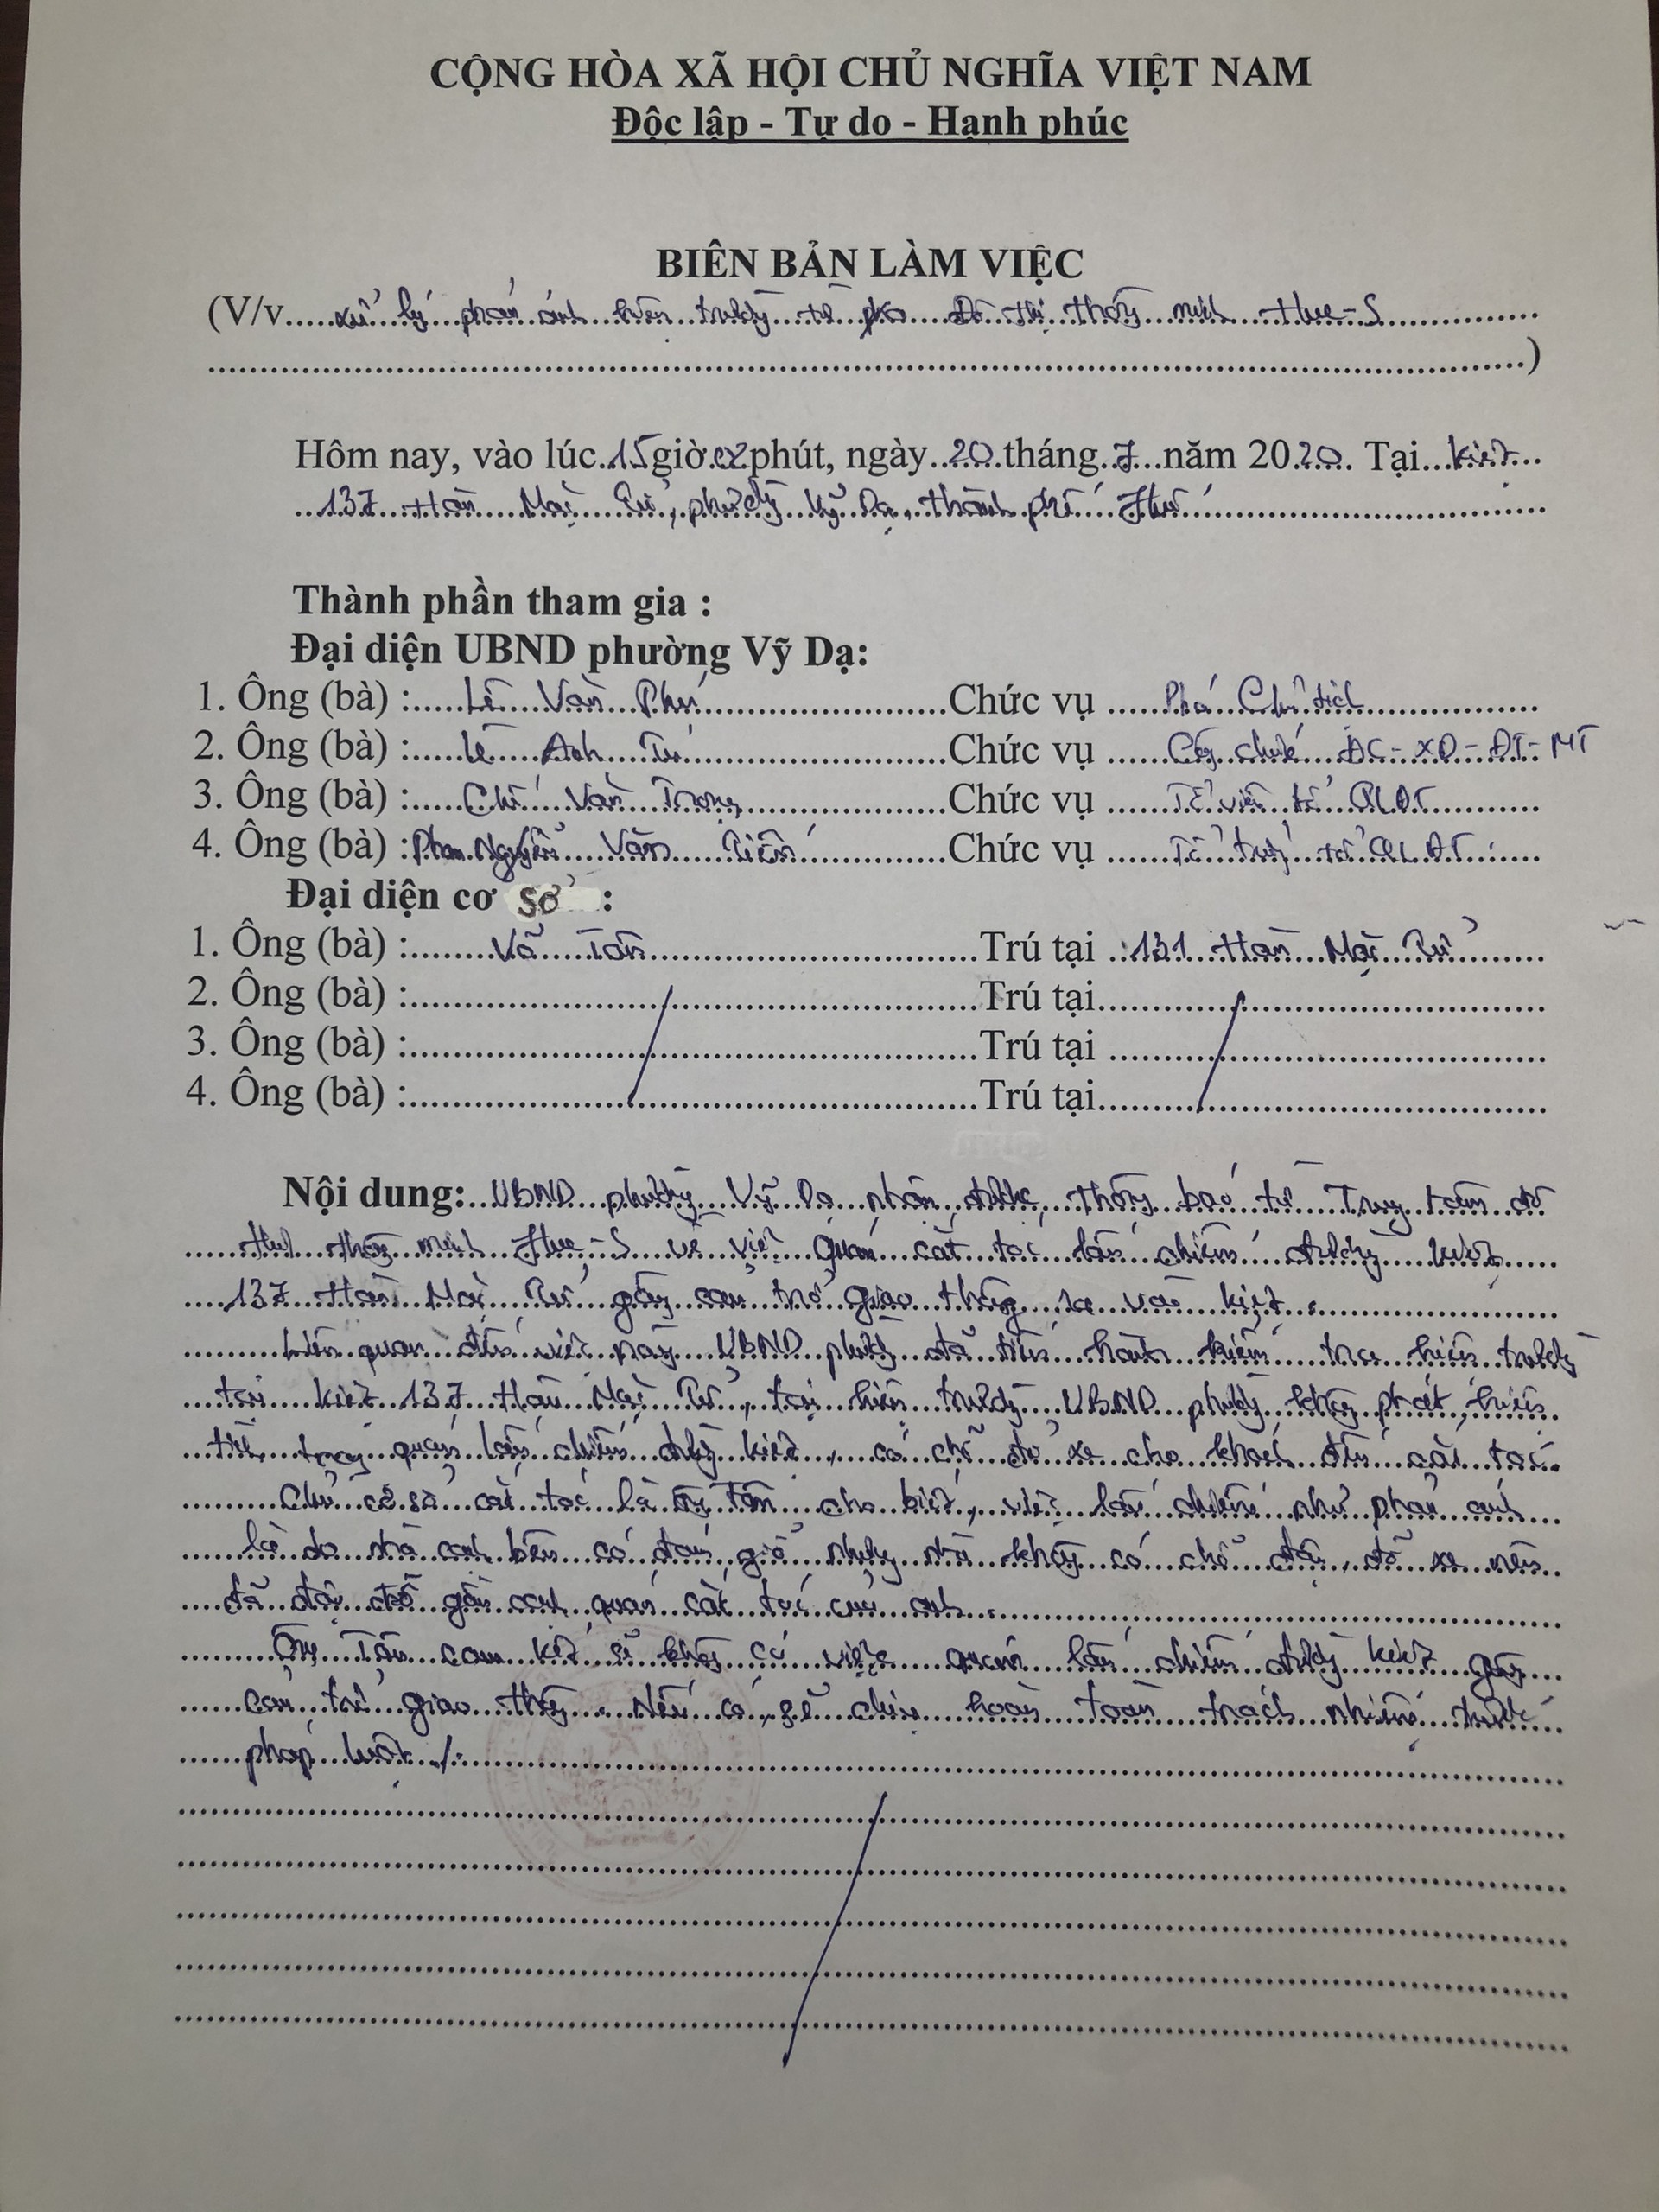 CỘNG HÒA XÃ HỘI CHỦ NGHĨA VIỆT NAM
Độc lập - Tự do - Hạnh phúc
BIÊN BẢN LÀM VIỆC
(V/v.....xử lý phản ánh hiện trường từ Đô thị thông minh Hue-S
)
Hôm nay, vào lúc 15 giờ 02 phút, ngày 20 tháng 7 năm 2020. Tại kiệt
137 Hàn Mặc Tử, phường Vỹ Dạ, thành phố Huế
Thành phần tham gia :
Đại diện UBND phường Vỹ Dạ:
1. Ông (bà) : Lê Văn Phú Chức vụ Phó Chủ tịch
2. Ông (bà) : Lê Anh Tú Chức vụ Công chức ĐC-XD-ĐT-MT
3. Ông (bà) : Văn Trọng Chức vụ Tổ viên tổ QLĐT
4. Ông (bà) : Phan Nguyễn Văn Tiến Chức vụ Tổ trưởng tổ QLĐT
Đại diện cơ sở :
1. Ông (bà) : Võ Tấn Trú tại : 131 Hàn Mặc Tử
2. Ông (bà) : Trú tại
3. Ông (bà) : Trú tại
4. Ông (bà) : Trú tại
Nội dung: UBND phường Vỹ Dạ nhận được thông báo từ Trung tâm đô
thị thông minh Hue-S về việc quán cắt tóc lấn chiếm đường kiệt
137 Hàn Mặc Tử gây cản trở giao thông ra vào kiệt.
Liên quan đến việc này UBND phường đã tiến hành kiểm tra hiện trường
tại kiệt 137 Hàn Mặc Tử, tại hiện trường UBND phường không phát hiện
tình trạng quán lấn chiếm đường kiệt, có chỗ để xe cho khách đến cắt tóc.
Chủ cơ sở cắt tóc là ông Tấn cho biết, việc lấn chiếm như phản ánh
là do nhà cạnh bên có đám giỗ nhưng nhà không có chỗ đậu, đỗ xe nên
đã đậu đỗ gần cạnh quán cắt tóc của anh.
Ông Tấn cam kết sẽ không có việc quán lấn chiếm đường kiệt gây
cản trở giao thông. Nếu có, sẽ chịu hoàn toàn trách nhiệm trước
pháp luật./.